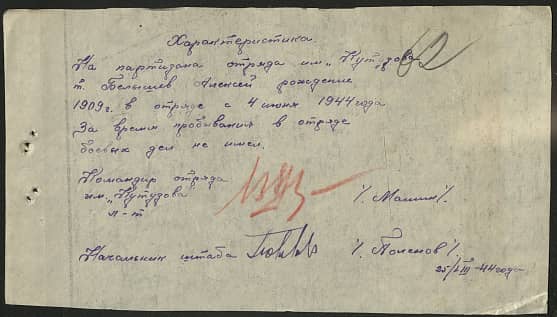 Характеристика.
На партизана отряда им „Кутузова
т. Белышев Алексей рождение
1909 г. в отряде с 4 июня 1944 года
За время пробивания в отряде
боевых дел не имел.
Командир отряда
им. „Кутузова
л-т /. Машин /.
Начальник штаба /. Поленов /.
25/VIII-44 года